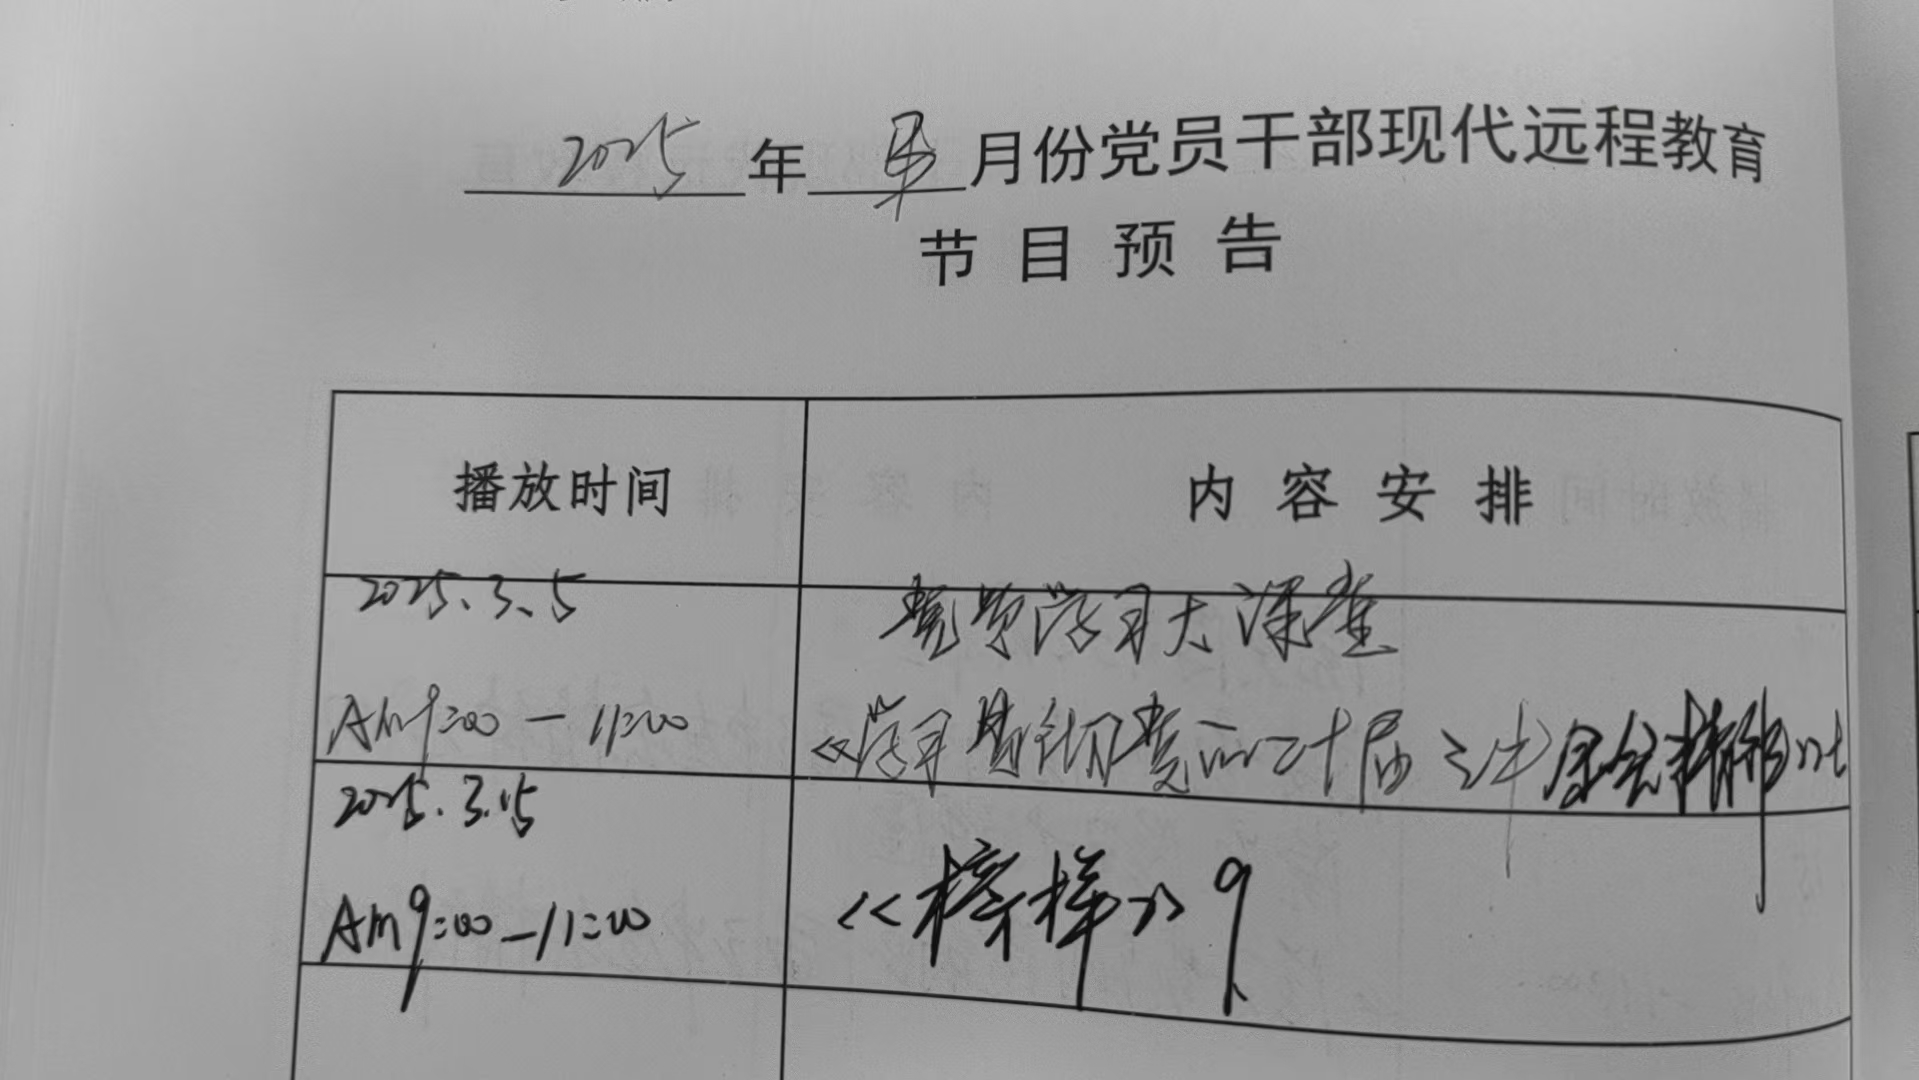 2025年 月份党员干部现代远程教育
节目预告
播放时间 内容安排
2025.3.5 党员学习大课堂
Am9:00-11:00 《学习贯彻党的二十届三中全会精神》
2025.3.15
Am9:00-11:00 《榜样》9